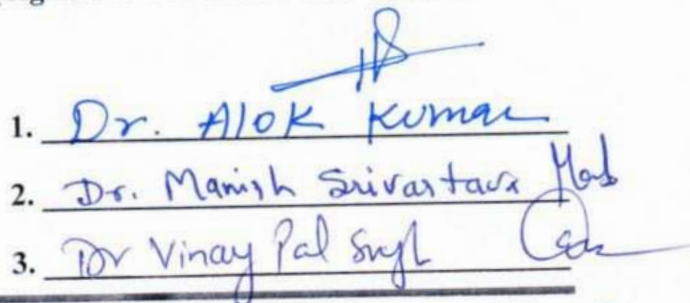 1. Dr. Alok Kumar
2. Dr. Manish Srivastava
3. Dr Vinay Pal Singh